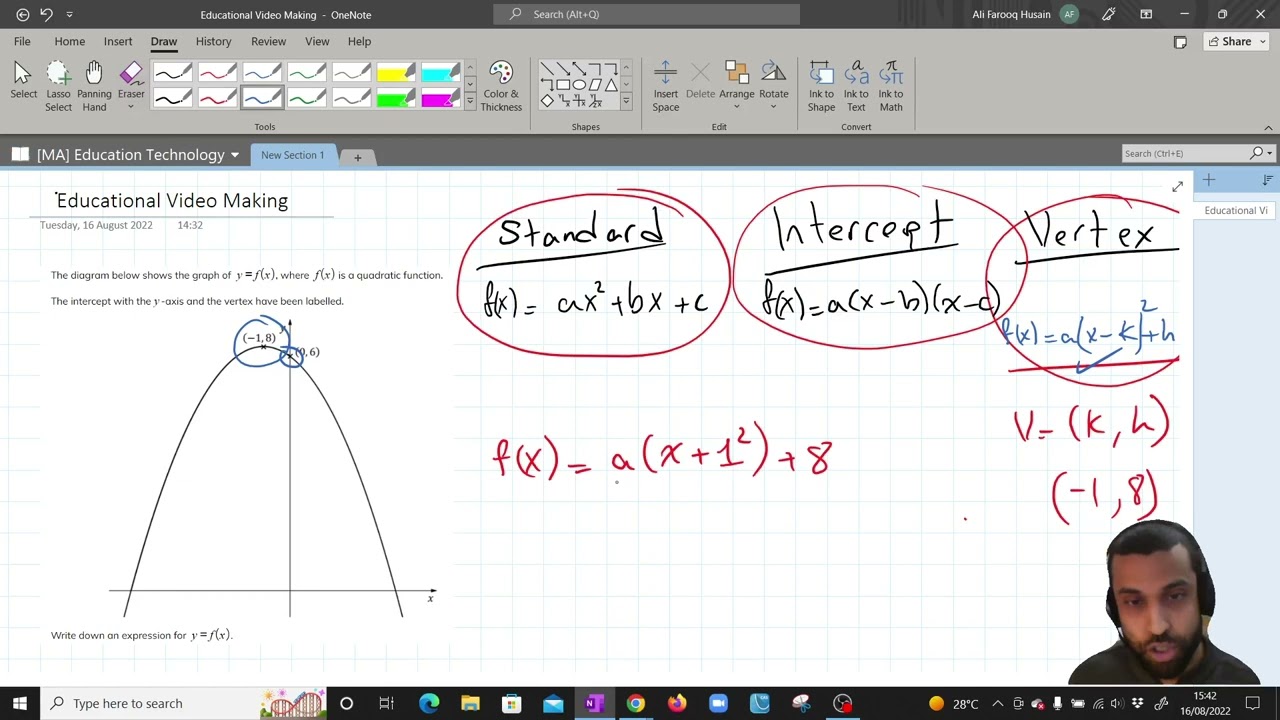 Educational Video Making - OneNote
Search (Alt+Q)
Ali Farooq Husain
AF
File Home Insert Draw History Review View Help
Share
Select
Lasso Select
Panning Hand
Eraser
Color & Thickness
Insert Space
Delete
Arrange
Rotate
Ink to Shape
Ink to Text
Ink to Math
Tools
Shapes
Edit
Convert
[MA] Education Technology
New Section 1
Search (Ctrl+E)
Educational Vi
Educational Video Making
Tuesday, 16 August 2022 14:32
The diagram below shows the graph of y = f(x), where f(x) is a quadratic function.
The intercept with the y-axis and the vertex have been labelled.
y
(−1, 8)
(0, 6)
x
Write down an expression for y = f(x).
Standard
f(x) = ax²+bx+c
Intercept
f(x)=a(x−b)(x−c)
Vertex
f(x)=a(x−k)²+h
V=(k,h)
(−1,8)
f(x) = a(x+1²)+8
Type here to search
28°C
15:42
16/08/2022